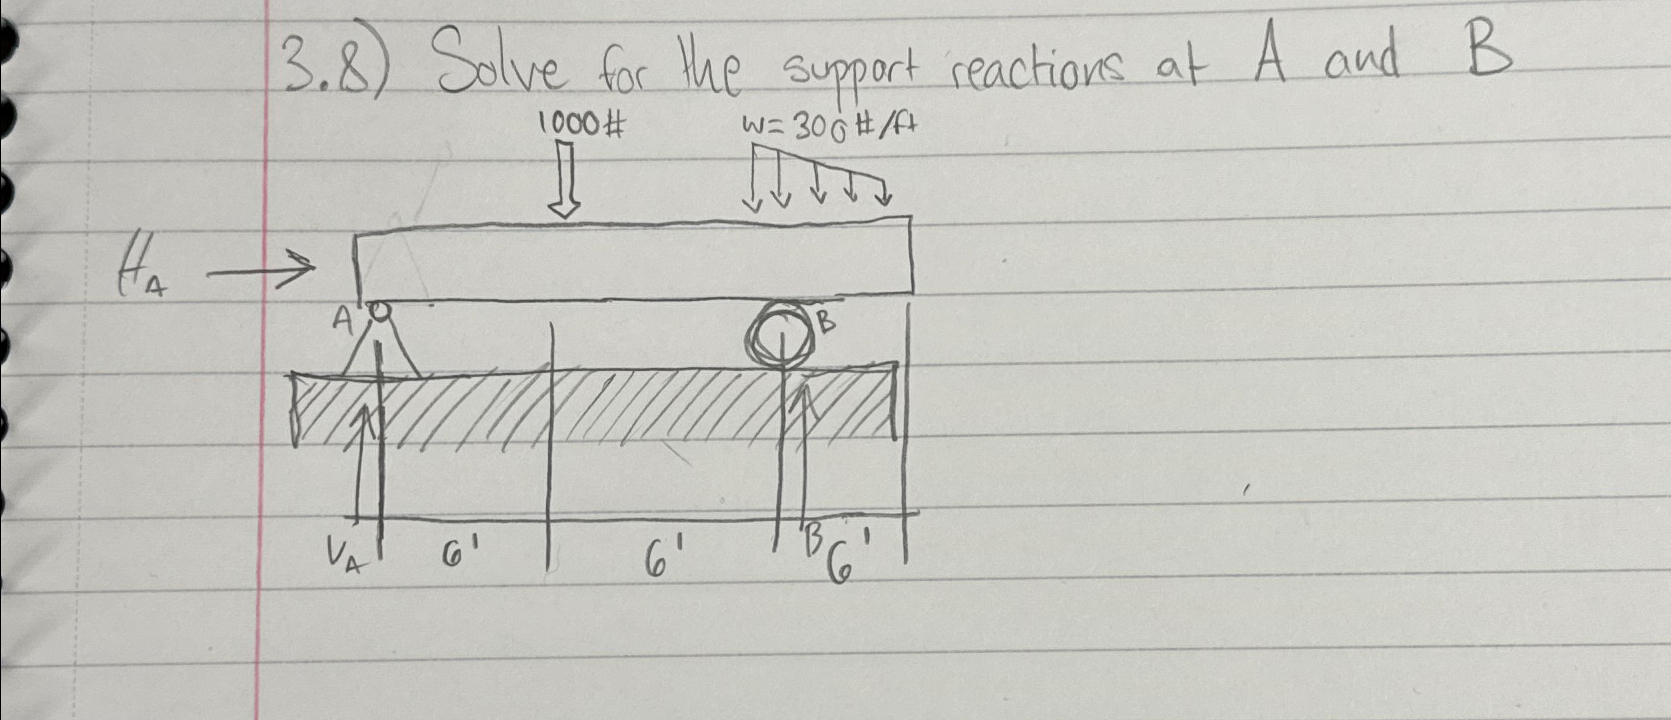 3.8) Solve for the support reactions at A and B
1000# w=300#/ft
H_A
A B
V_A 6' 6' B 6'